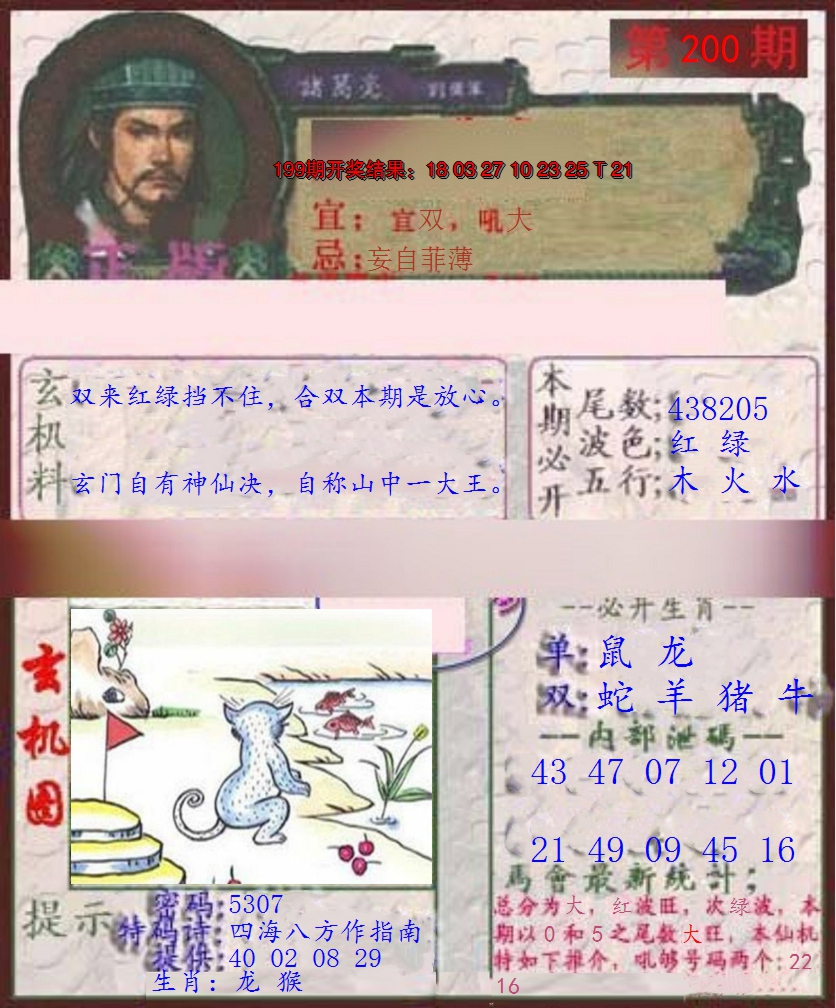 第 200 期
諸葛亮
199期开奖结果：18 03 27 10 23 25 T 21
宜：宜双，吼大
忌：妄自菲薄
正版
玄机料
双来红绿挡不住，合双本期是放心。
玄门自有神仙决，自称山中一大王。
本期必开
尾数；438205
波色；红 绿
五行；木 火 水
玄机图
--必开生肖--
单：鼠 龙
双：蛇 羊 猪 牛
—内部泄碼—
43 47 07 12 01
21 49 09 45 16
馬會最新統計；
总分为大，红波旺，次绿波，本
期以0和5之尾数大旺，本仙机
特如下推介，吼够号码两个：22
16
提示
密码：5307
特码诗：四海八方作指南
提供：40 02 08 29
生肖：龙 猴